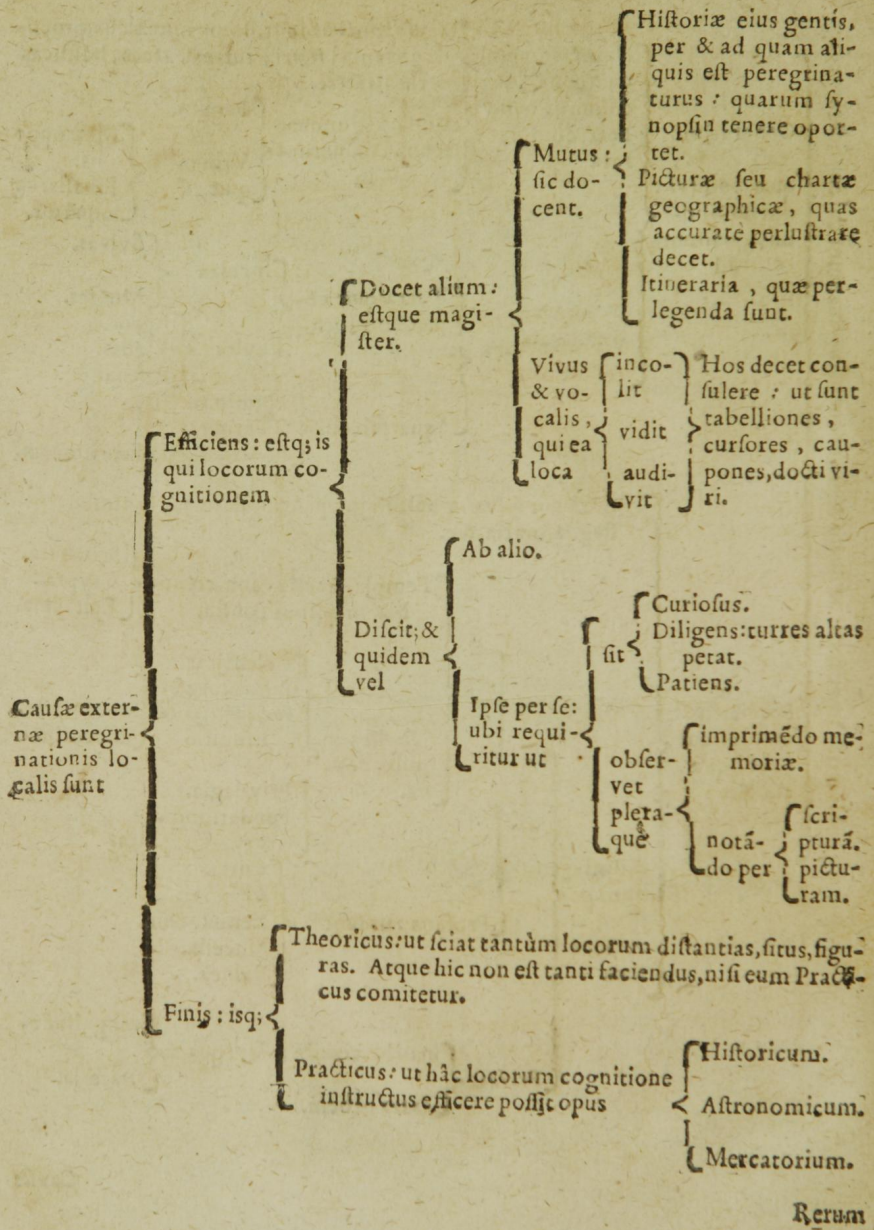 Causæ exter-
næ peregri-
nationis lo-
calis sunt
Efficiens : estq; is
qui locorum co-
gnitionem
Docet alium :
estque magi-
ster.
Mutus :
sic do-
cent.
Historiæ eius gentis,
per & ad quam ali-
quis est peregrina-
turus : quarum sy-
nopsin tenere opor-
tet.
Picturæ seu chartæ
geographicæ, quas
accurate perlustrare
decet.
Itineraria , quæ per-
legenda sunt.
Vivus
& vo-
calis ,
qui ea
loca
inco-
lit
vidit
audi-
vit
Hos decet con-
sulere : ut sunt
tabelliones ,
cursores , cau-
pones, docti vi-
ri.
Discit; &
quidem
vel
Ab alio.
Ipse per se:
ubi requi-
ritur ut
sit
Curiosus.
Diligens: turres altas
petat.
Patiens.
obser-
vet
plera-
que
imprimēdo me-
moriæ.
notā-
do per
scri-
pturā.
pictu-
ram.
Finis : isq;
Theoricus: ut sciat tantùm locorum distantias, situs, figu-
ras. Atque hic non est tanti faciendus, nisi eum Practi-
cus comitetur.
Practicus: ut hâc locorum cognitione
instructus efficere possit opus
Historicum.
Astronomicum.
Mercatorium.
Rerum